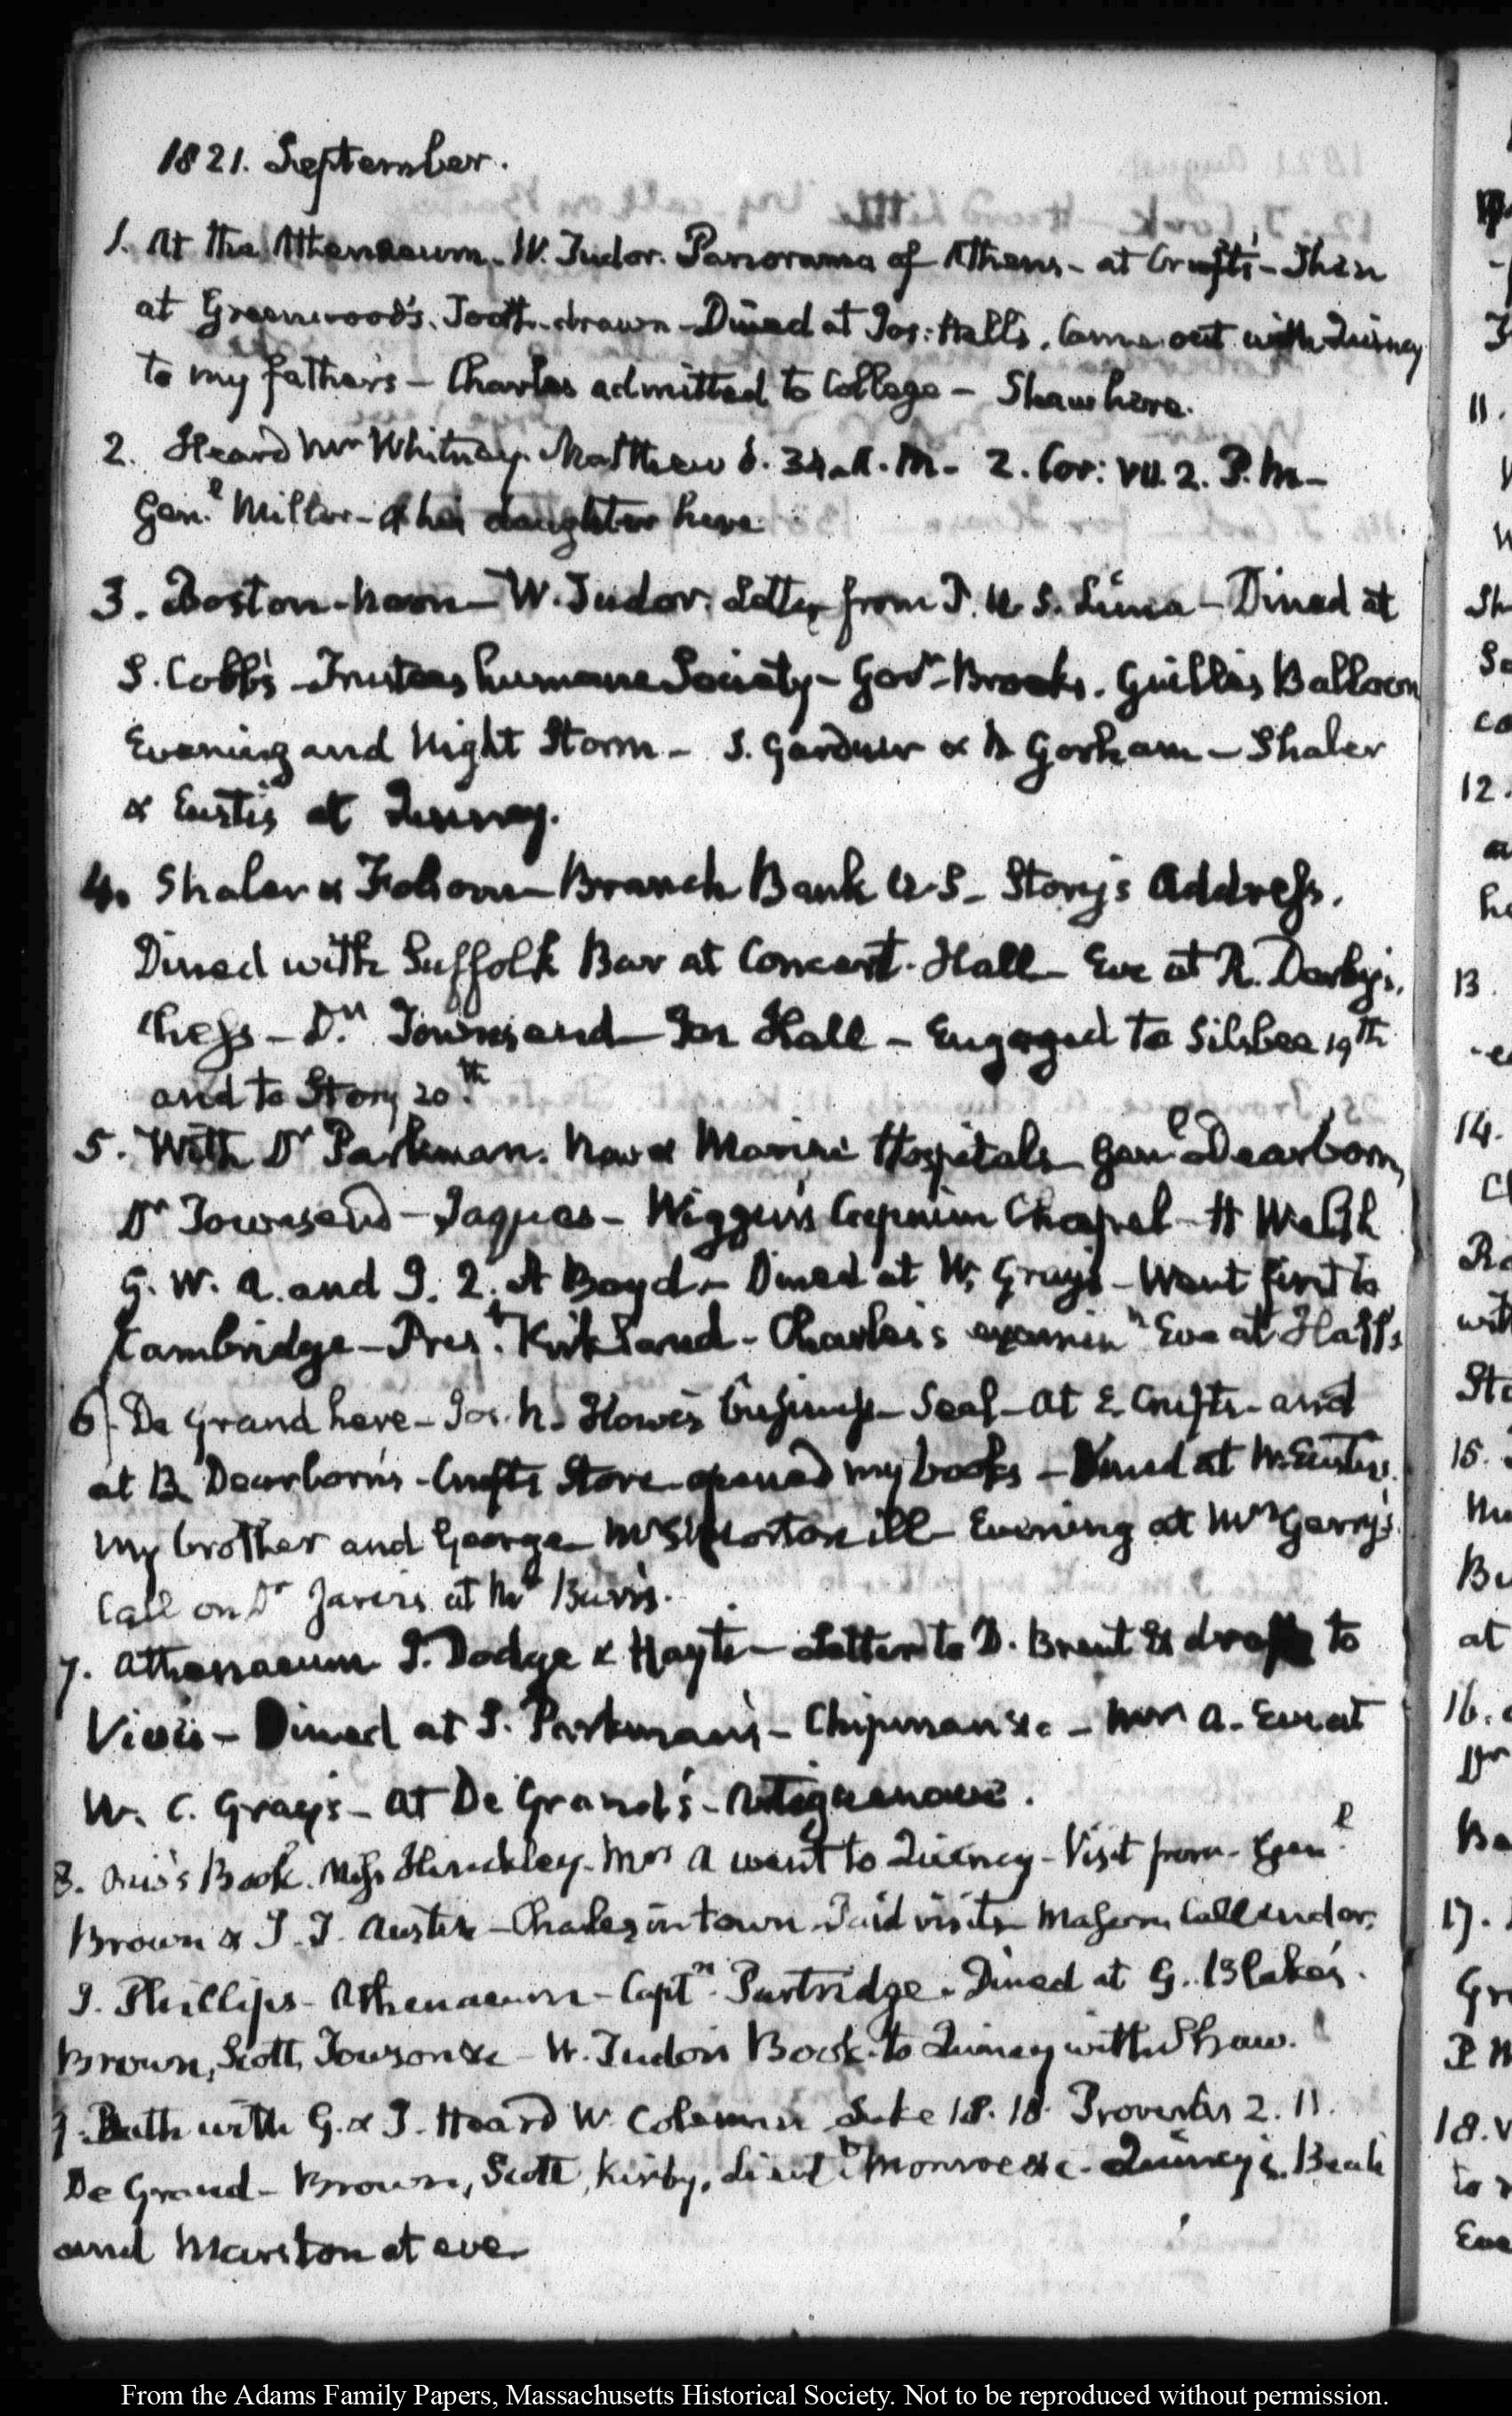 1821. September.
1. At the Athenaeum. W. Tudor. Panorama of Athens - at Crufts' - Then
at Greenwood's. Tooth drawn - Dined at Jos: Hall's. Came out with Quincy
to my father's - Charles admitted to College - Shaw here.
2. Heard Mr Whitney. Matthew 6. 34. A. M. - 2. Cor: VII. 2. P. M -
Genl. Miller - & his daughter here
3. Boston - Noon - W. Tudor. Letter from Dined at
S. Cobb's - Trustees humane Society - Govr Brooks. Guille's Balloon
Evening and Night Storm - S. Gardner & Gorham - Shaler
& Eustis at Quincy.
4. Shaler & Folsom - Branch Bank U.S - Story's Address.
Dined with Suffolk Bar at Concert Hall - Eve at R. Derby's.
Chess - Dr Townsend - Jos Hall - Engaged to Silsbee 19th
and to Story 20th.
5. With Dr Parkman. New & Marine Hospitals - Genl Dearborn,
Dr Townsend - Jaques - Wiggin's Chapel - H Welsh
G. W. A. and J. Q. A Boyd - Dined at W. Gray's - Went first to
Cambridge - Prest. Kirkland - Charles's examinn Eve at Hall's
6. De Grand here - Jos. N. Howe's Seal - at E. Crufts - and
at B Dearborn's - Crufts Store opened my books - Dined at W. Eustis's.
My brother and George - Morton ill - Evening at Mrs Gerry's.
Call on Dr Jarvis at Mr Burr's.
7. Athenaeum J. Dodge & Hayti - Letter to D. Brent & to
Dined at S. Parkman's - Chipman &c - Mrs A. Eve at
W. C. Gray's - at De Grand's -
8. Book. Miss Hinckley. Mrs A went to Quincy - Visit from Genl.
Brown & J. T. Austin - Charles in town. Paid visits Mason, Callender.
J. Phillips - Athenaeum - Captn. Partridge - Dined at G. Blake's.
Brown, Scott, Towson &c - W. Tudor's Book. to Quincy with Shaw.
9. Bath with G. & J. Heard W. Luke 18. 18. Proverbs 2. 11.
De Grand - Brown, Scott, Kirby, Lieutt. Monroe &c - Quincy's. Beale
and Marston at eve
From the Adams Family Papers, Massachusetts Historical Society. Not to be reproduced without permission.